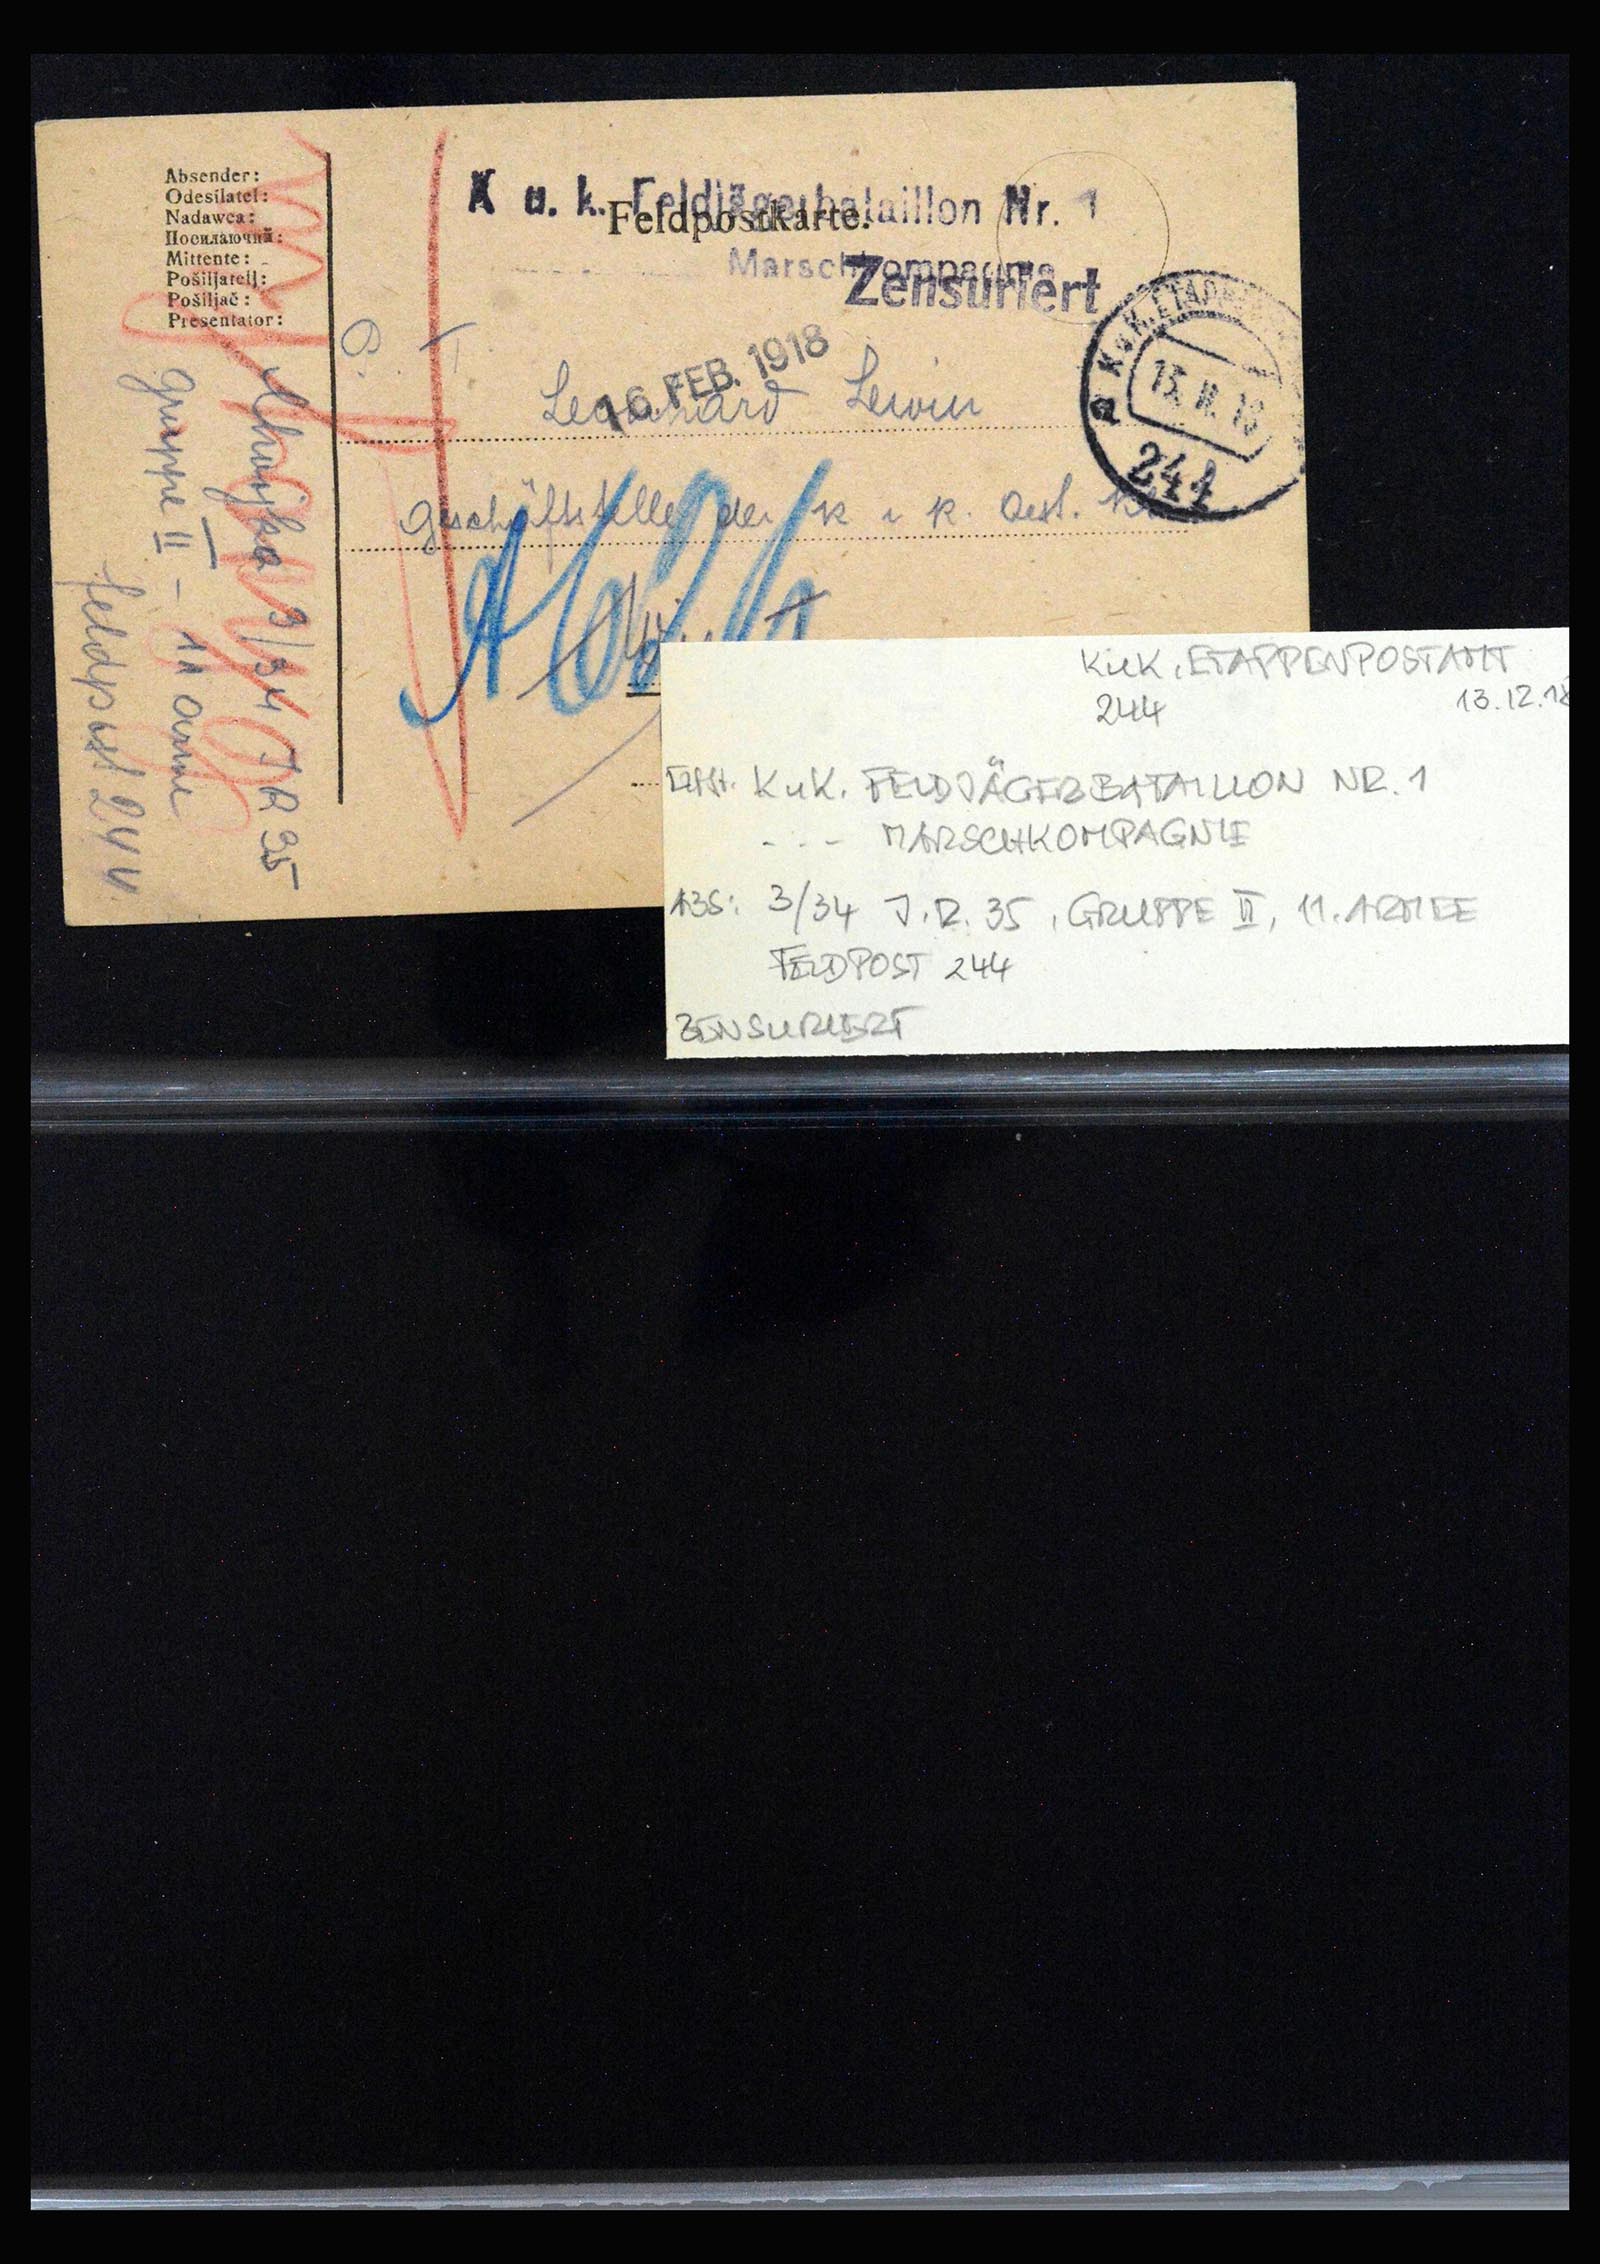 Absender:
Odesílatel:
Nadawca:
Посилаючий:
Mittente:
Pošiljatelj:
Pošiljač:
Presentator:
K u. k. Feldjägerbataillon Nr. 1
Feldpostkarte.
Marschkompagnie
Zensuriert
16. FEB. 1918
K.u.K. ETAPPEN
a
13. II. 18
244
Leonhard Lewin
Geschäftsstelle der k u k. Oest.
9/34 IR 35
Gruppe II - 11 Armee
Feldpost 244
KuK. ETAPPENPOSTAMT
244 13.12.18
KuK. FELDJÄGERBATAILLON NR. 1
--- MARSCHKOMPAGNIE
ABS: 3/34 J.R. 35, GRUPPE II, 11. ARMEE
FELDPOST 244
ZENSURIERT